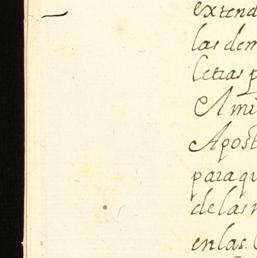 extend
las dem
letras p
A mi
Apost
para qu
de las n
en las